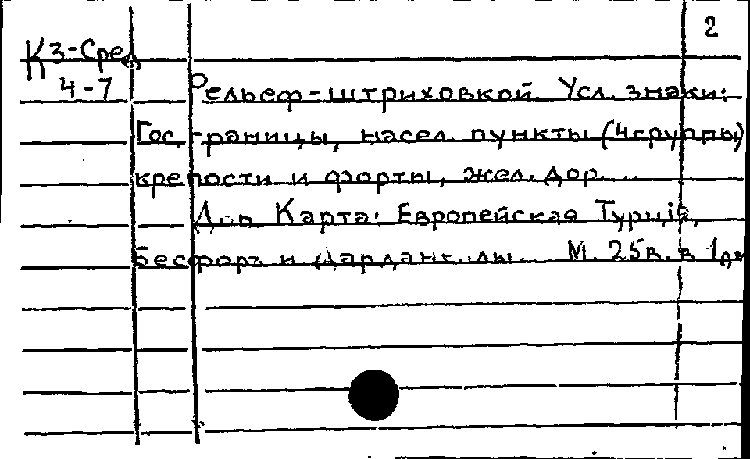 2
К 3-Сред
4-7
Рельеф-штриховкой. Усл. знаки:
Гос. границы, насел. пункты (4 группы)
крепости и форты, жел. дор. ...
Доп. Карта: Европейская Турцiя,
Босфоръ и Дарданеллы. М. 25в. в 1дм